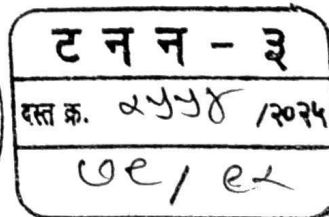 ट न न - ३
दस्त क्र. २५५४ /२०२५
७९/ ९२